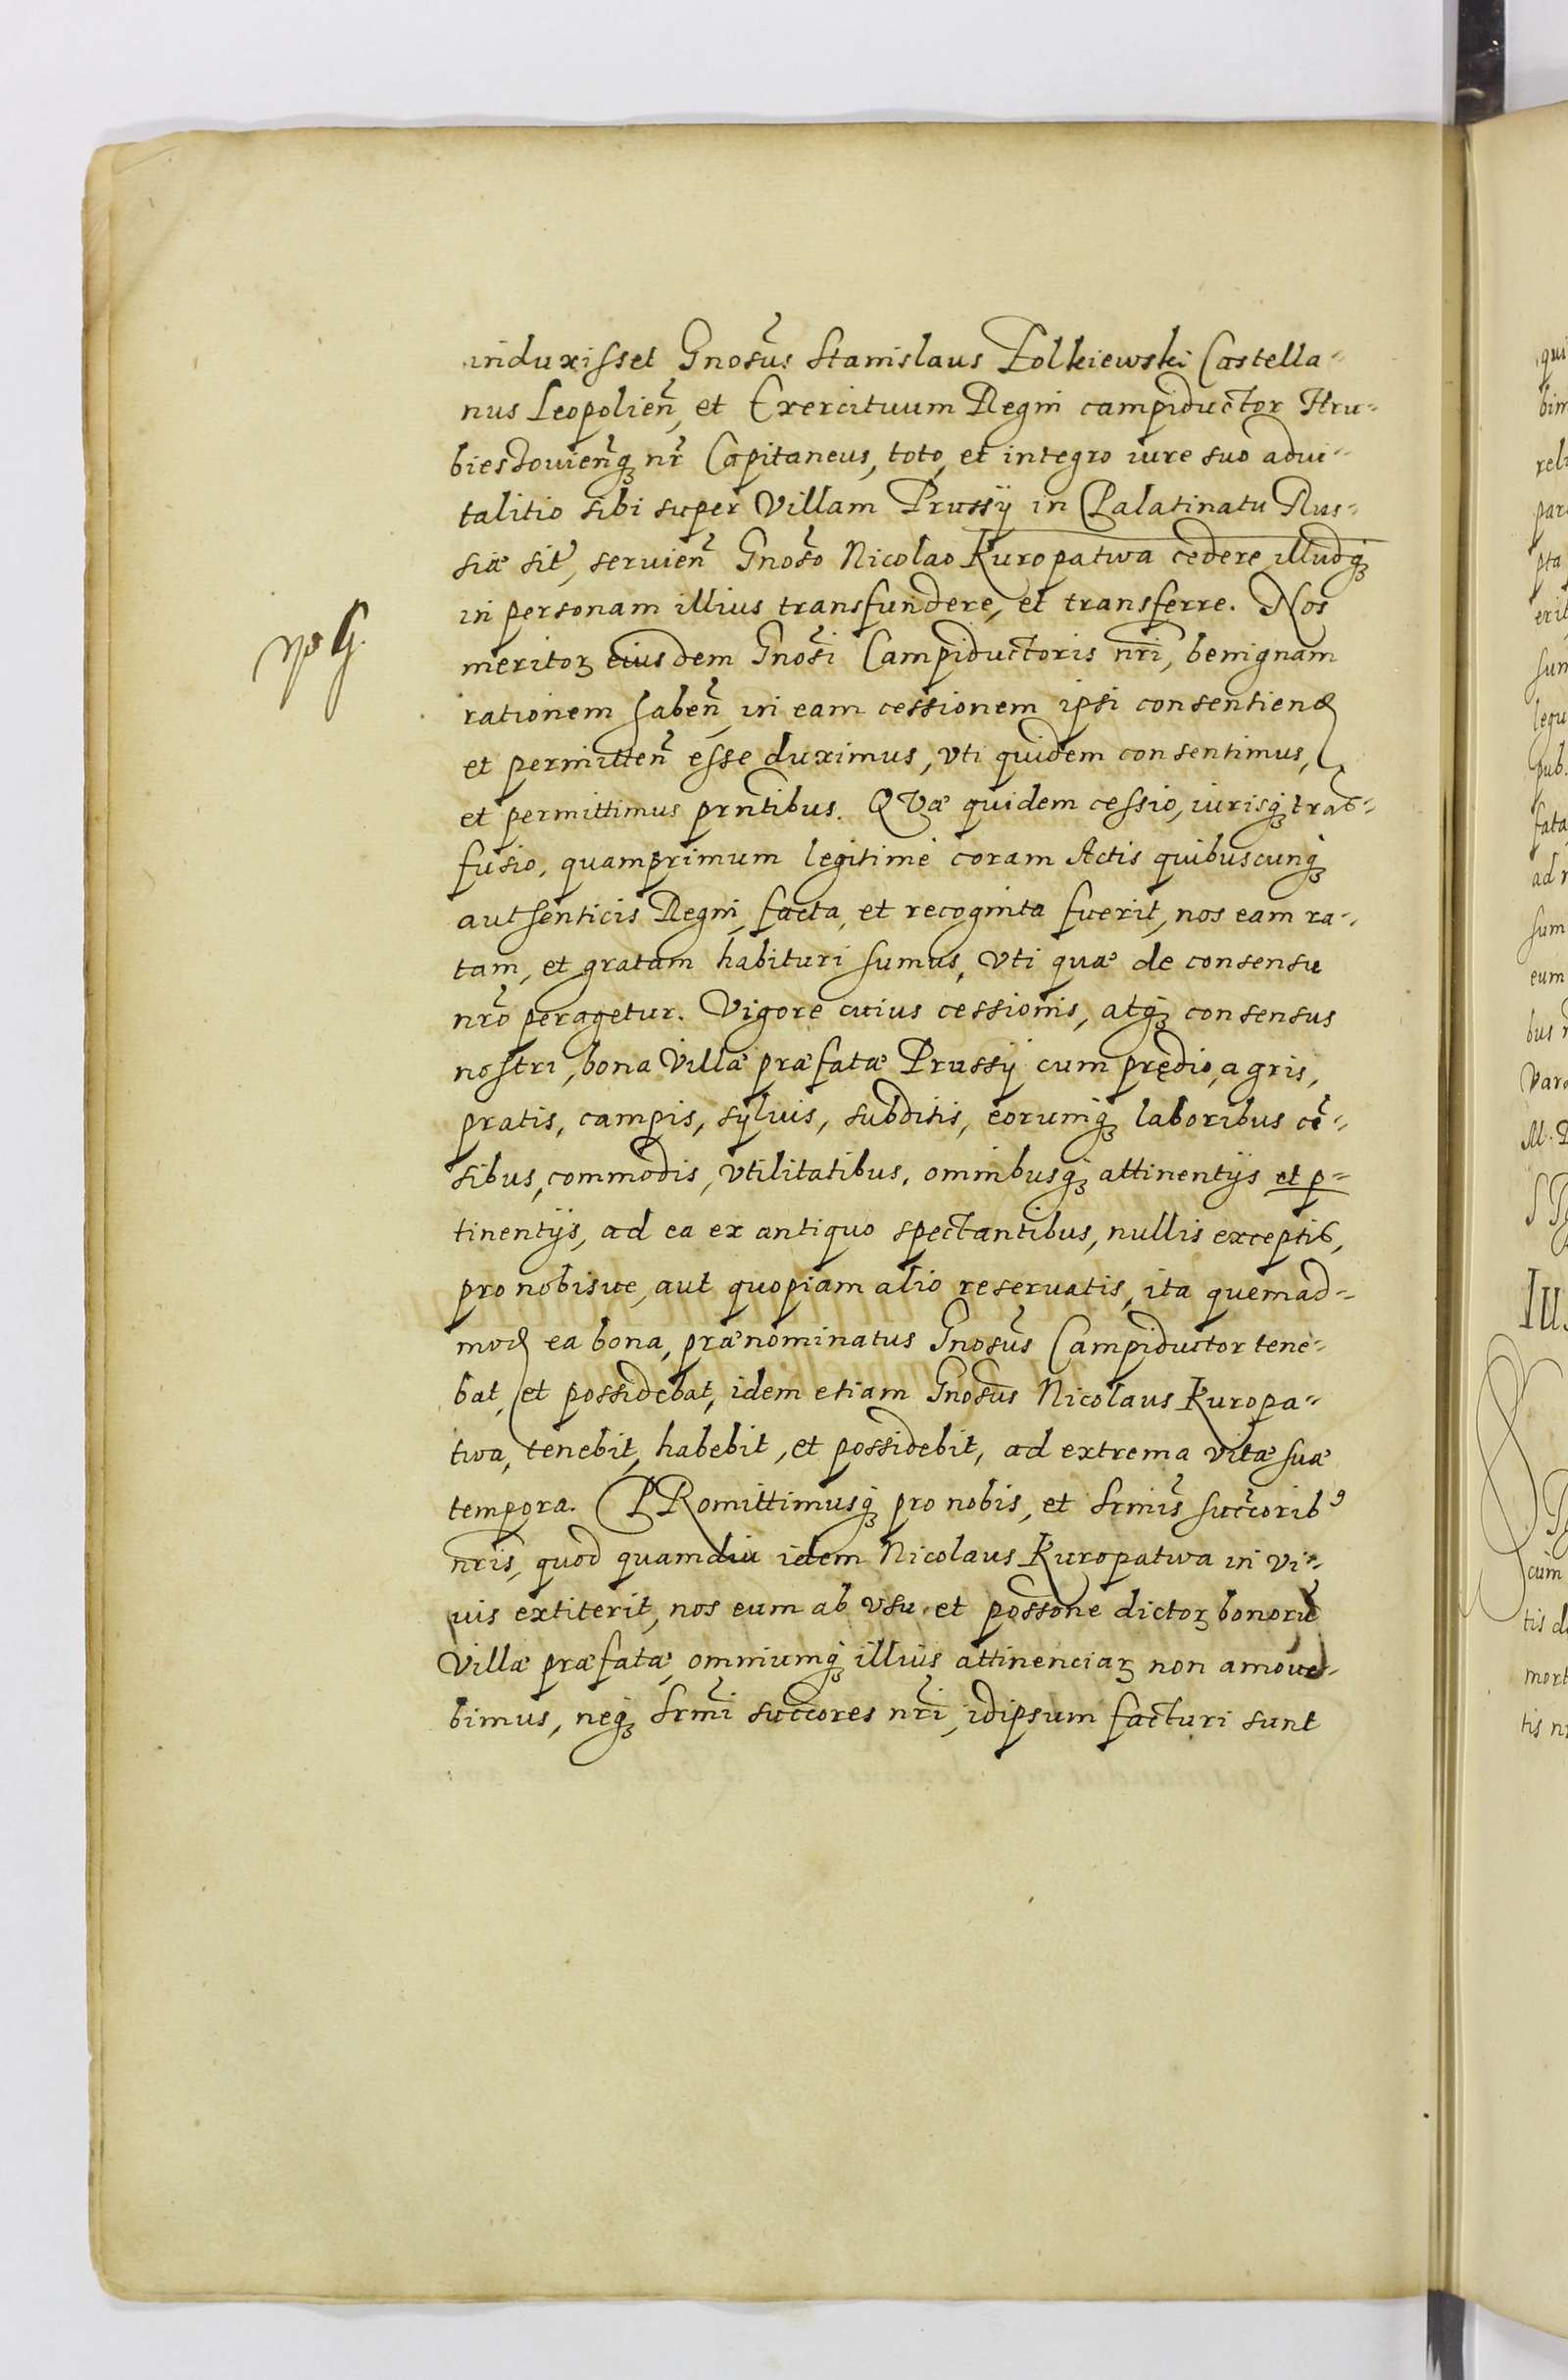 induxisset Gnosus Stanislaus Żolkiewski Castella-
nus Leopolien̄, et Exercituum Regni campiductor Hru-
biesżouien̄q́ȝ nr̄ Capitaneus, toto, et integro iure suo adui-
talitio sibi super Villam Prussÿ in Palatinatu Rus-
siæ sit̄, seruien̄ Gnoso Nicolao Kuropatwa cedere, illudq́ȝ
in personam illius transfundere, et transferre. Nos
meritoȝ eiusdem Gnosi Campiductoris nr̄i, benignam
rationem haben̄, in eam cessionem ipsi consentiend
et permitten̄ esse duximus, vti quidem consentimus,
et permittimus prn̄tibus. QVæ quidem cessio, iurisq́ȝ tras-
fusio, quamprimum legitimè coram Actis quibuscunq́ȝ
authenticis Regni, facta, et recognita fuerit, nos eam ra-
tam, et gratam habituri sumus, vti quæ de consensu
nr̄o peragetur. Vigore cuius cessionis, atq́ȝ consensus
nostri, bona Villæ præfatæ Prussÿ cum prędio, agris,
pratis, campis, sÿluis, subditis, eorumq́ȝ laboribus cē-
sibus, commodis, vtilitatibus, omnibusq́ȝ attinentÿs et p-
tinentÿs, ad ea ex antiquo spectantibus, nullis exceptis,
pro nobisue, aut quopiam alio reseruatis, ita quemad-
mod ea bona, prænominatus Gnosus Campiductor tene-
bat, et possidebat, idem etiam Gnosus Nicolaus Kuropa-
twa, tenebit, habebit, et possidebit, ad extrema vitæ suæ
tempora. PRomittimusq́ȝ pro nobis, et Srm̄is succorib9
nr̄is, quod quamdiu idem Nicolaus Kuropatwa in vi-
uis extiterit, nos eum ab vsu et possone dictoȝ bonorū
Villæ præfatæ, omniumq́ȝ illius attinenciaȝ non amoue-
bimus, neq́ȝ Srm̄i succores nr̄i, idipsum facturi sunt